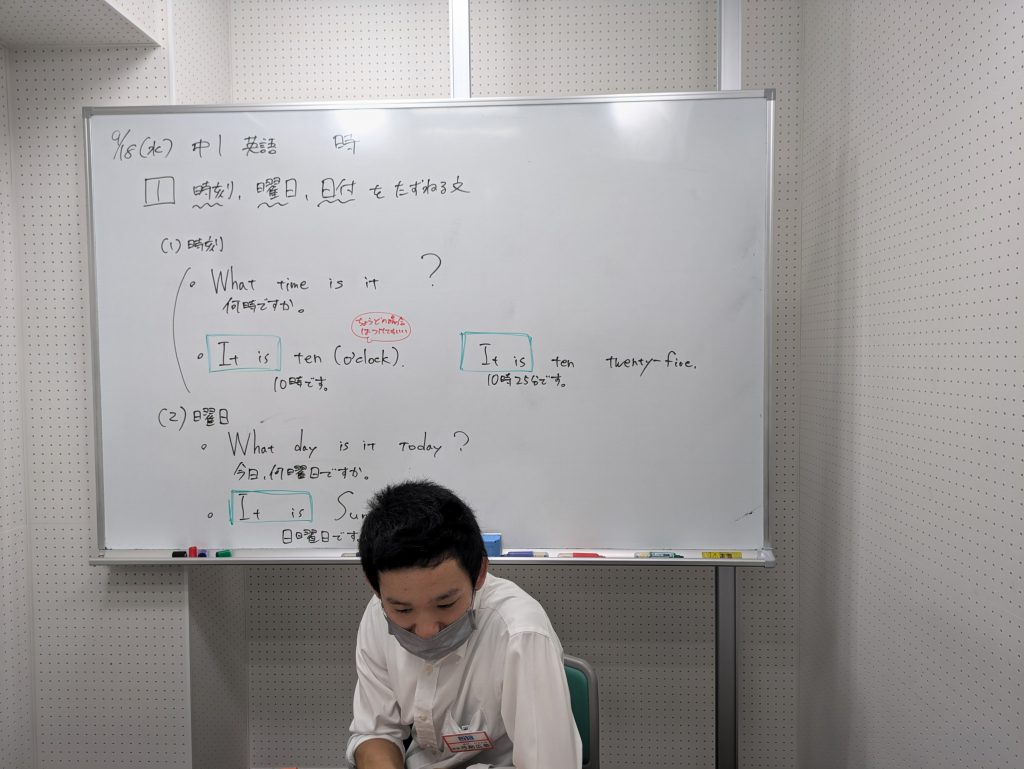 9/18(水) 中1 英語 時
1 時刻, 曜日, 日付 をたずねる文
(1) 時刻
• What time is it ?
何時ですか。
ちょうどの場合
はつけてもいい
• It is ten (o'clock). It is ten twenty-five.
10時です。 10時25分です。
(2) 曜日
• What day is it today?
今日、何曜日ですか。
• It is Sun
日曜日です